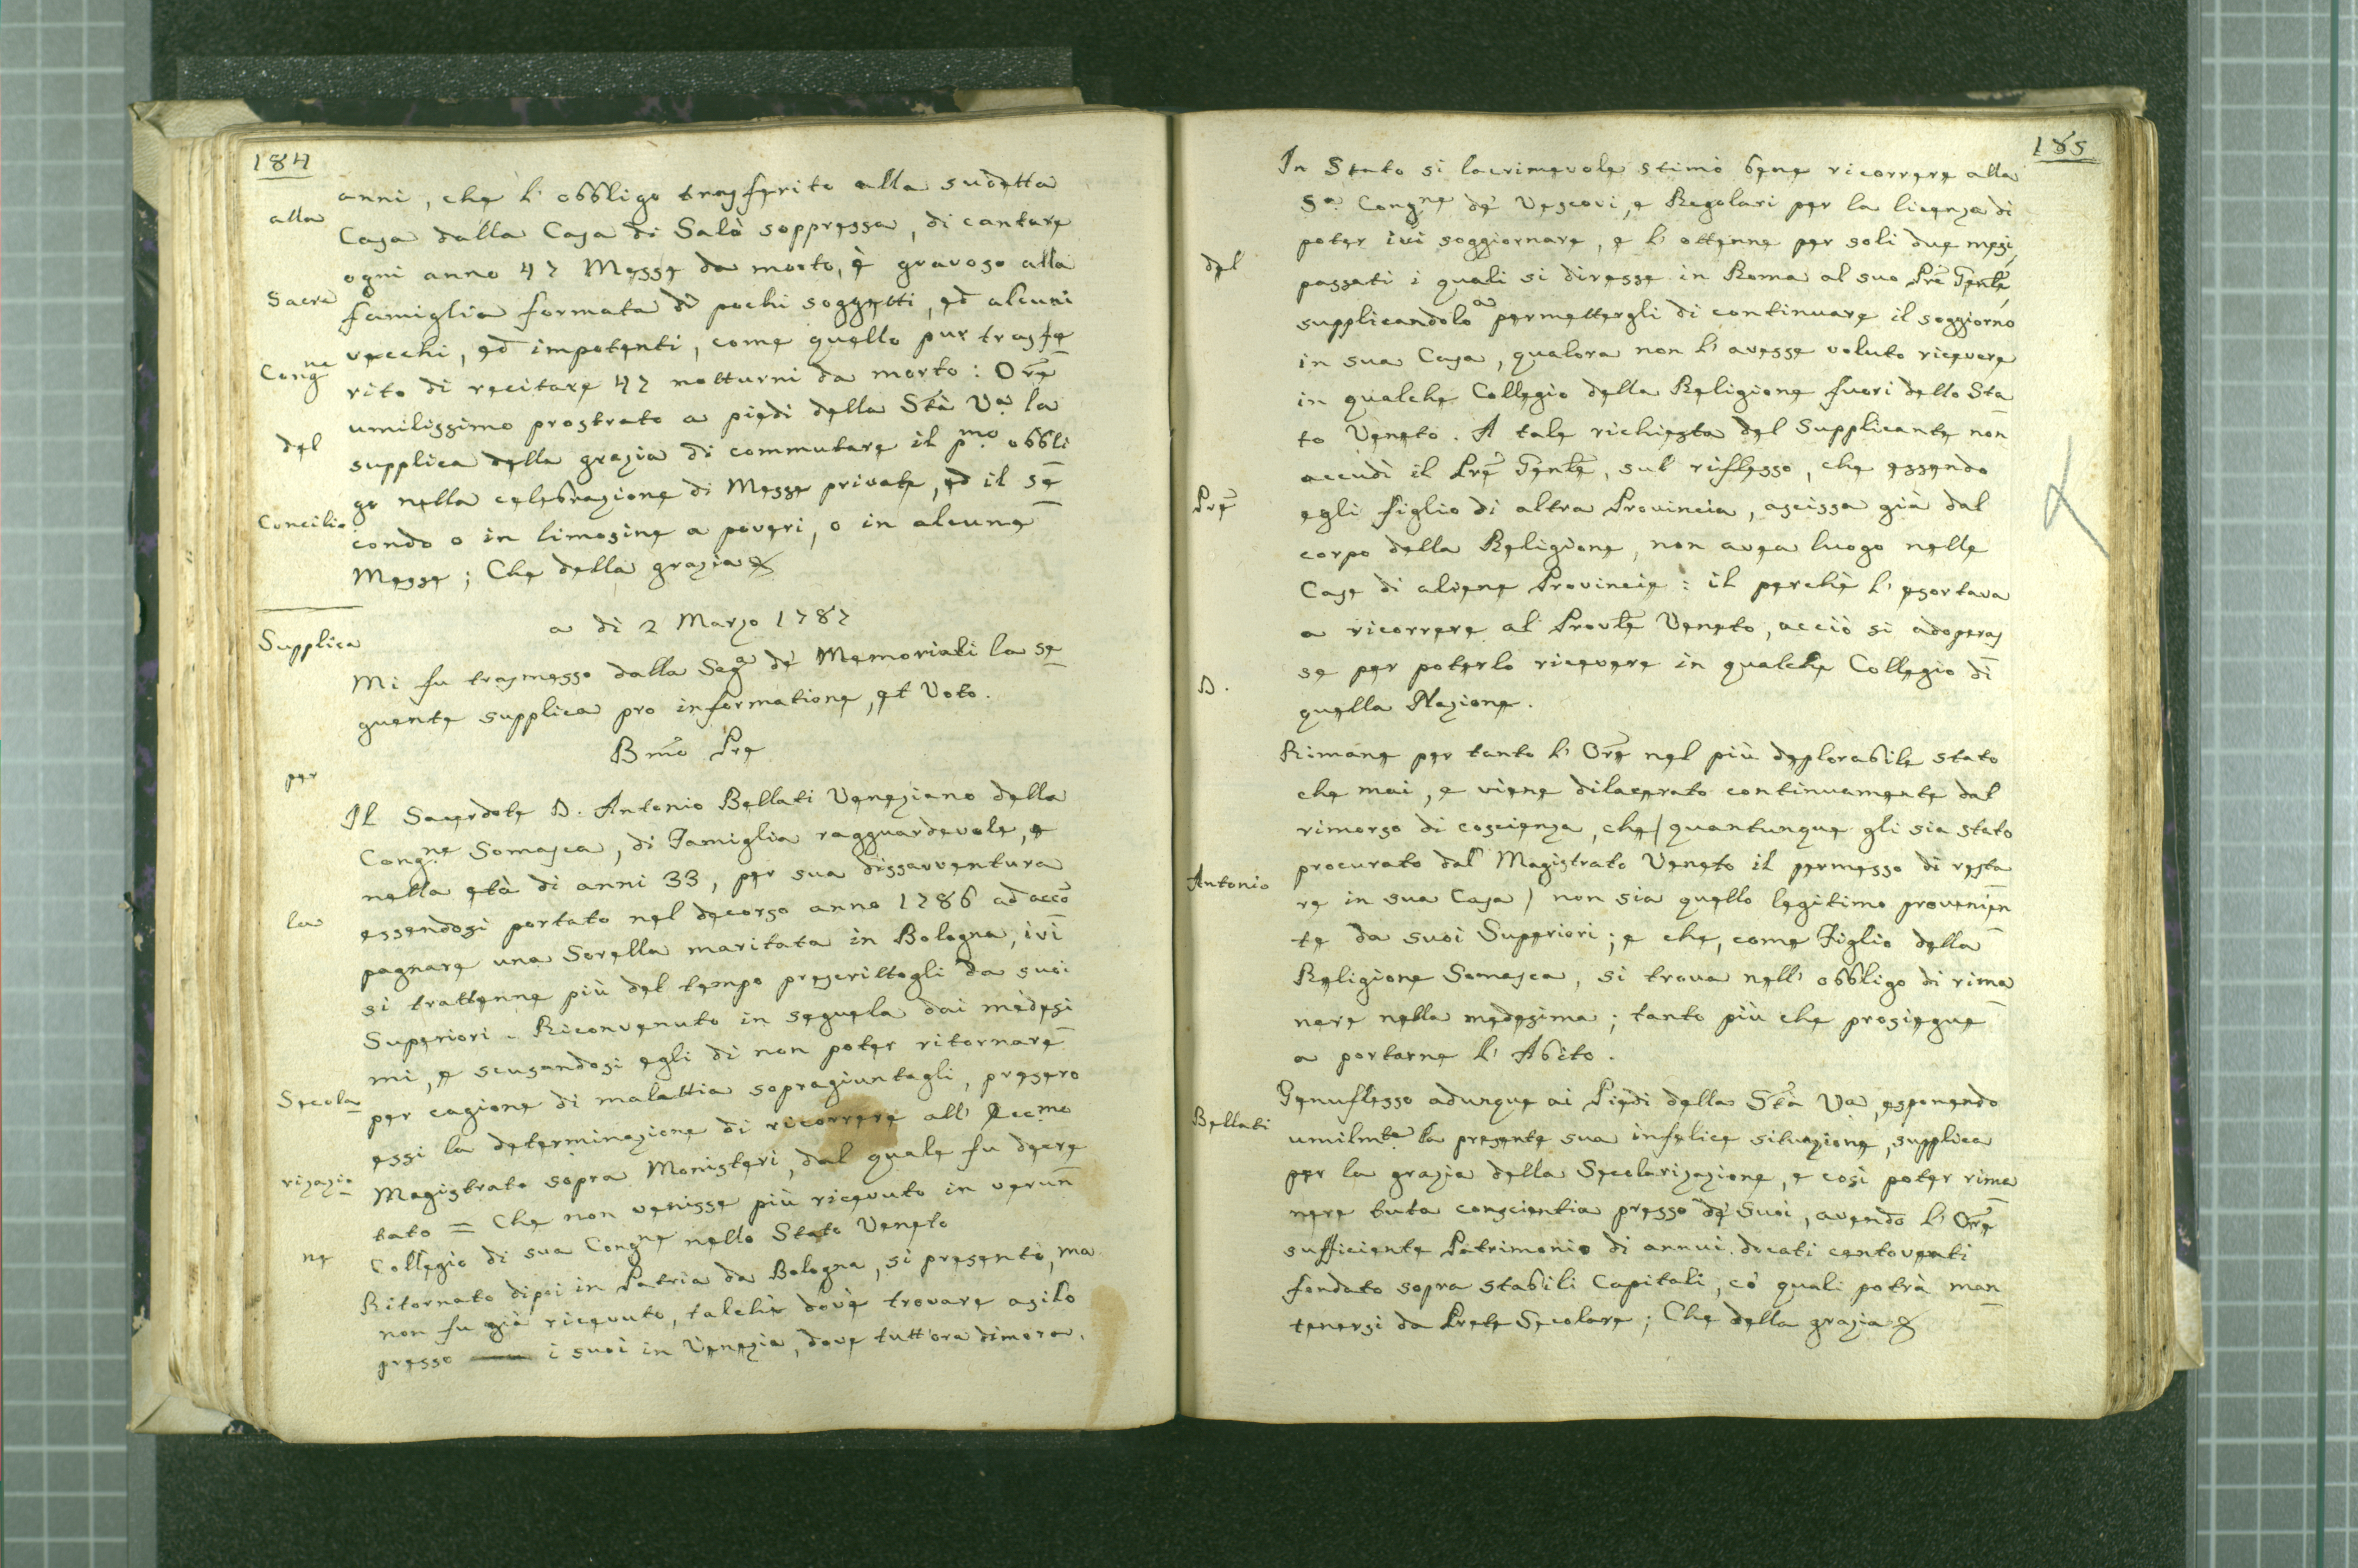 184
anni, che l' obbligo trasferito alla sudetta
alla
Casa dalla Casa di Salò soppressa, di cantare
ogni anno 47 Messe da morto, è gravoso alla
Sacra
famiglia formata di pochi soggetti, ed alcuni
vecchi, ed impotenti, come quello pur trasfe
Congne
rito di recitare 47 notturni da morto: Ore
umilissimo prostrato a piedi della Stà Va la
del
supplica della grazia di commutare il pmo obbli
go nella celebrazione di Messe private, ed il se
Concilio
condo o in limosine a poveri, o in alcune
Messe; Che della grazia &
a di 2 Marzo 1787
Supplica
Mi fu trasmesso dalla Sega de' Memoriali la se
guente supplica pro informatione, et Voto.
Bmo Pre
per
Il Sacerdote D. Antonio Bellati Veneziano della
Congne Somasca, di Famiglia ragguardevole, e
nella età di anni 33, per sua dissavventura
la
essendosi portato nel decorso anno 1786 ad acco
pagnare una Sorella maritata in Bologna, ivi
si trattenne più del tempo prescrittogli da suoi
Superiori. Riconvenuto in seguela dai medesi
mi, e scusandosi egli di non poter ritornare
Secola
per cagione di malattia sopragiuntagli, presero
essi la determinazione di ricorrere all' Eccmo
rizazio
Magistrato sopra Monisteri, dal quale fu decre
tato = Che non venisse più ricevuto in verun
ne
Collegio di sua Congne nello Stato Veneto
Ritornato dipoi in Patria da Bologna, si presentò, ma
non fu già ricevuto, talchè dovè trovare asilo
presso i suoi in Venezia, dove tutt'ora dimora.
185
In Stato si lacrimevole stimò bene ricorrere alla
Sa Congne de' Vescovi, e Regolari per la licenza di
poter ivi soggiornare, e l' ottenne per soli due mesi,
del
passati i quali si diresse in Roma al suo Pre Genle,
supplicandolo a permettergli di continuare il soggiorno
in sua Casa, qualora non l' avesse voluto ricevere
in qualche Collegio della Religione fuori dello Sta
to Veneto. A tale richiesta del Supplicante non
accudì il Pre Genle, sul riflesso, che essendo
Pre
egli figlio di altra Provincia, ascissa già dal
corpo della Religione, non avea luogo nelle
Case di aliene Provincie: il perchè l' esortava
a ricorrere al Provle Veneto, acciò si adoperas
D.
se per poterlo ricevere in qualche Collegio di
quella Nazione.
Rimane per tanto l' Ore nel più deplorabile stato
che mai, e viene dilacerato continuamente dal
rimorso di coscienza, che (quantunque gli sia stato
Antonio
procurato dal Magistrato Veneto il permesso di resta
re in sua Casa) non sia quello legitimo provenien
te da suoi Superiori; e che, come Figlio della
Religione Somasca, si trova nell' obbligo di rima
nere nella medesima; tanto più che prosiegue
a portarne l' Abito.
Bellati
Genuflesso adunque ai Piedi della Stà Va, esponendo
umilmte la presente sua infelice situazione, supplica
per la grazia della Secolarizazione, e così poter rima
nere tuta conscientia presso de' Suoi, avendo l' Ore
sufficiente Patrimonio di annui docati centoventi
fondato sopra stabili Capitali, co' quali potrà man
tenersi da Prete Secolare; Che della grazia &